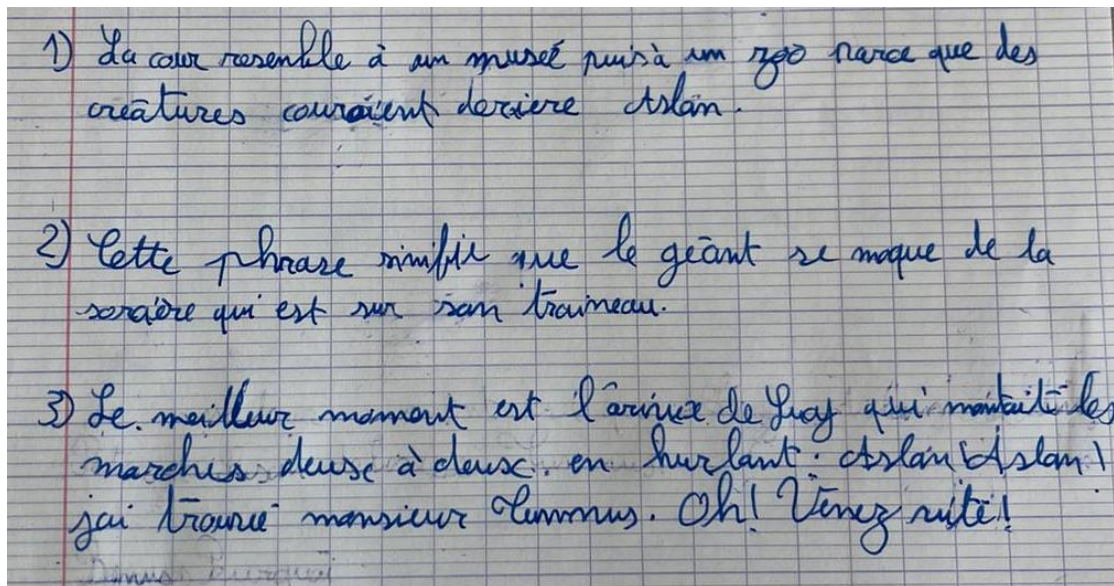 1) La cour resenble à un museé puis à un zoo parce que des
créatures couraient deriere Aslan.
2) Cette phrase sinifie que le géant se moque de la
sorcière qui est sur son traineau.
3) Le meilleur moment est l'arivée de Lucy qui montait les
marches deux à deux en hurlant : Aslan ! Aslan !
jai trouvé monsieur Tumnus. Oh ! Venez vite !